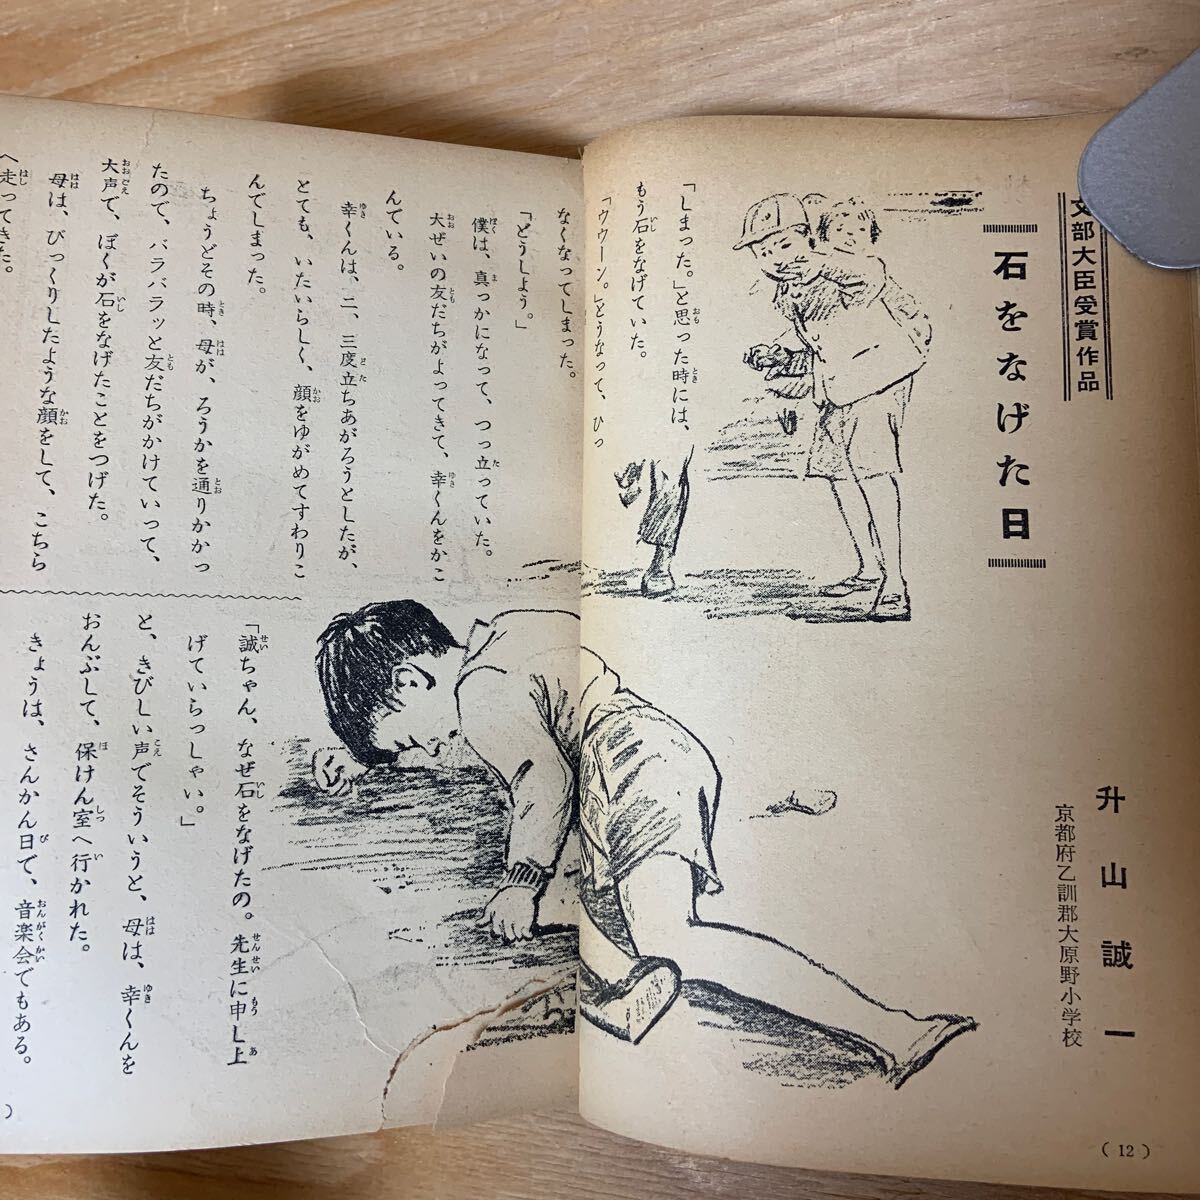 文部大臣受賞作品
石をなげた日
升山誠一
京都府乙訓郡大原野小学校
「しまった。」と思った時には、
もう石をなげていた。
「ウウーン。」とうなって、ひっ
なくなってしまった。
「どうしよう。」
僕は、真っかになって、つっ立っていた。
大ぜいの友だちがよってきて、幸くんをかこ
んでいる。
幸くんは、二、三度立ちあがろうとしたが、
とても、いたいらしく、顔をゆがめてすわりこ
んでしまった。
ちょうどその時、母が、ろうかを通りかかっ
たので、バラバラッと友だちがかけていって、
大声で、ぼくが石をなげたことをつげた。
母は、びっくりしたような顔をして、こちら
へ走ってきた。
「誠ちゃん、なぜ石をなげたの。先生に申し上
げていらっしゃい。」
と、きびしい声でそういうと、母は、幸くんを
おんぶして、保けん室へ行かれた。
きょうは、さんかん日で、音楽会でもある。
(12)